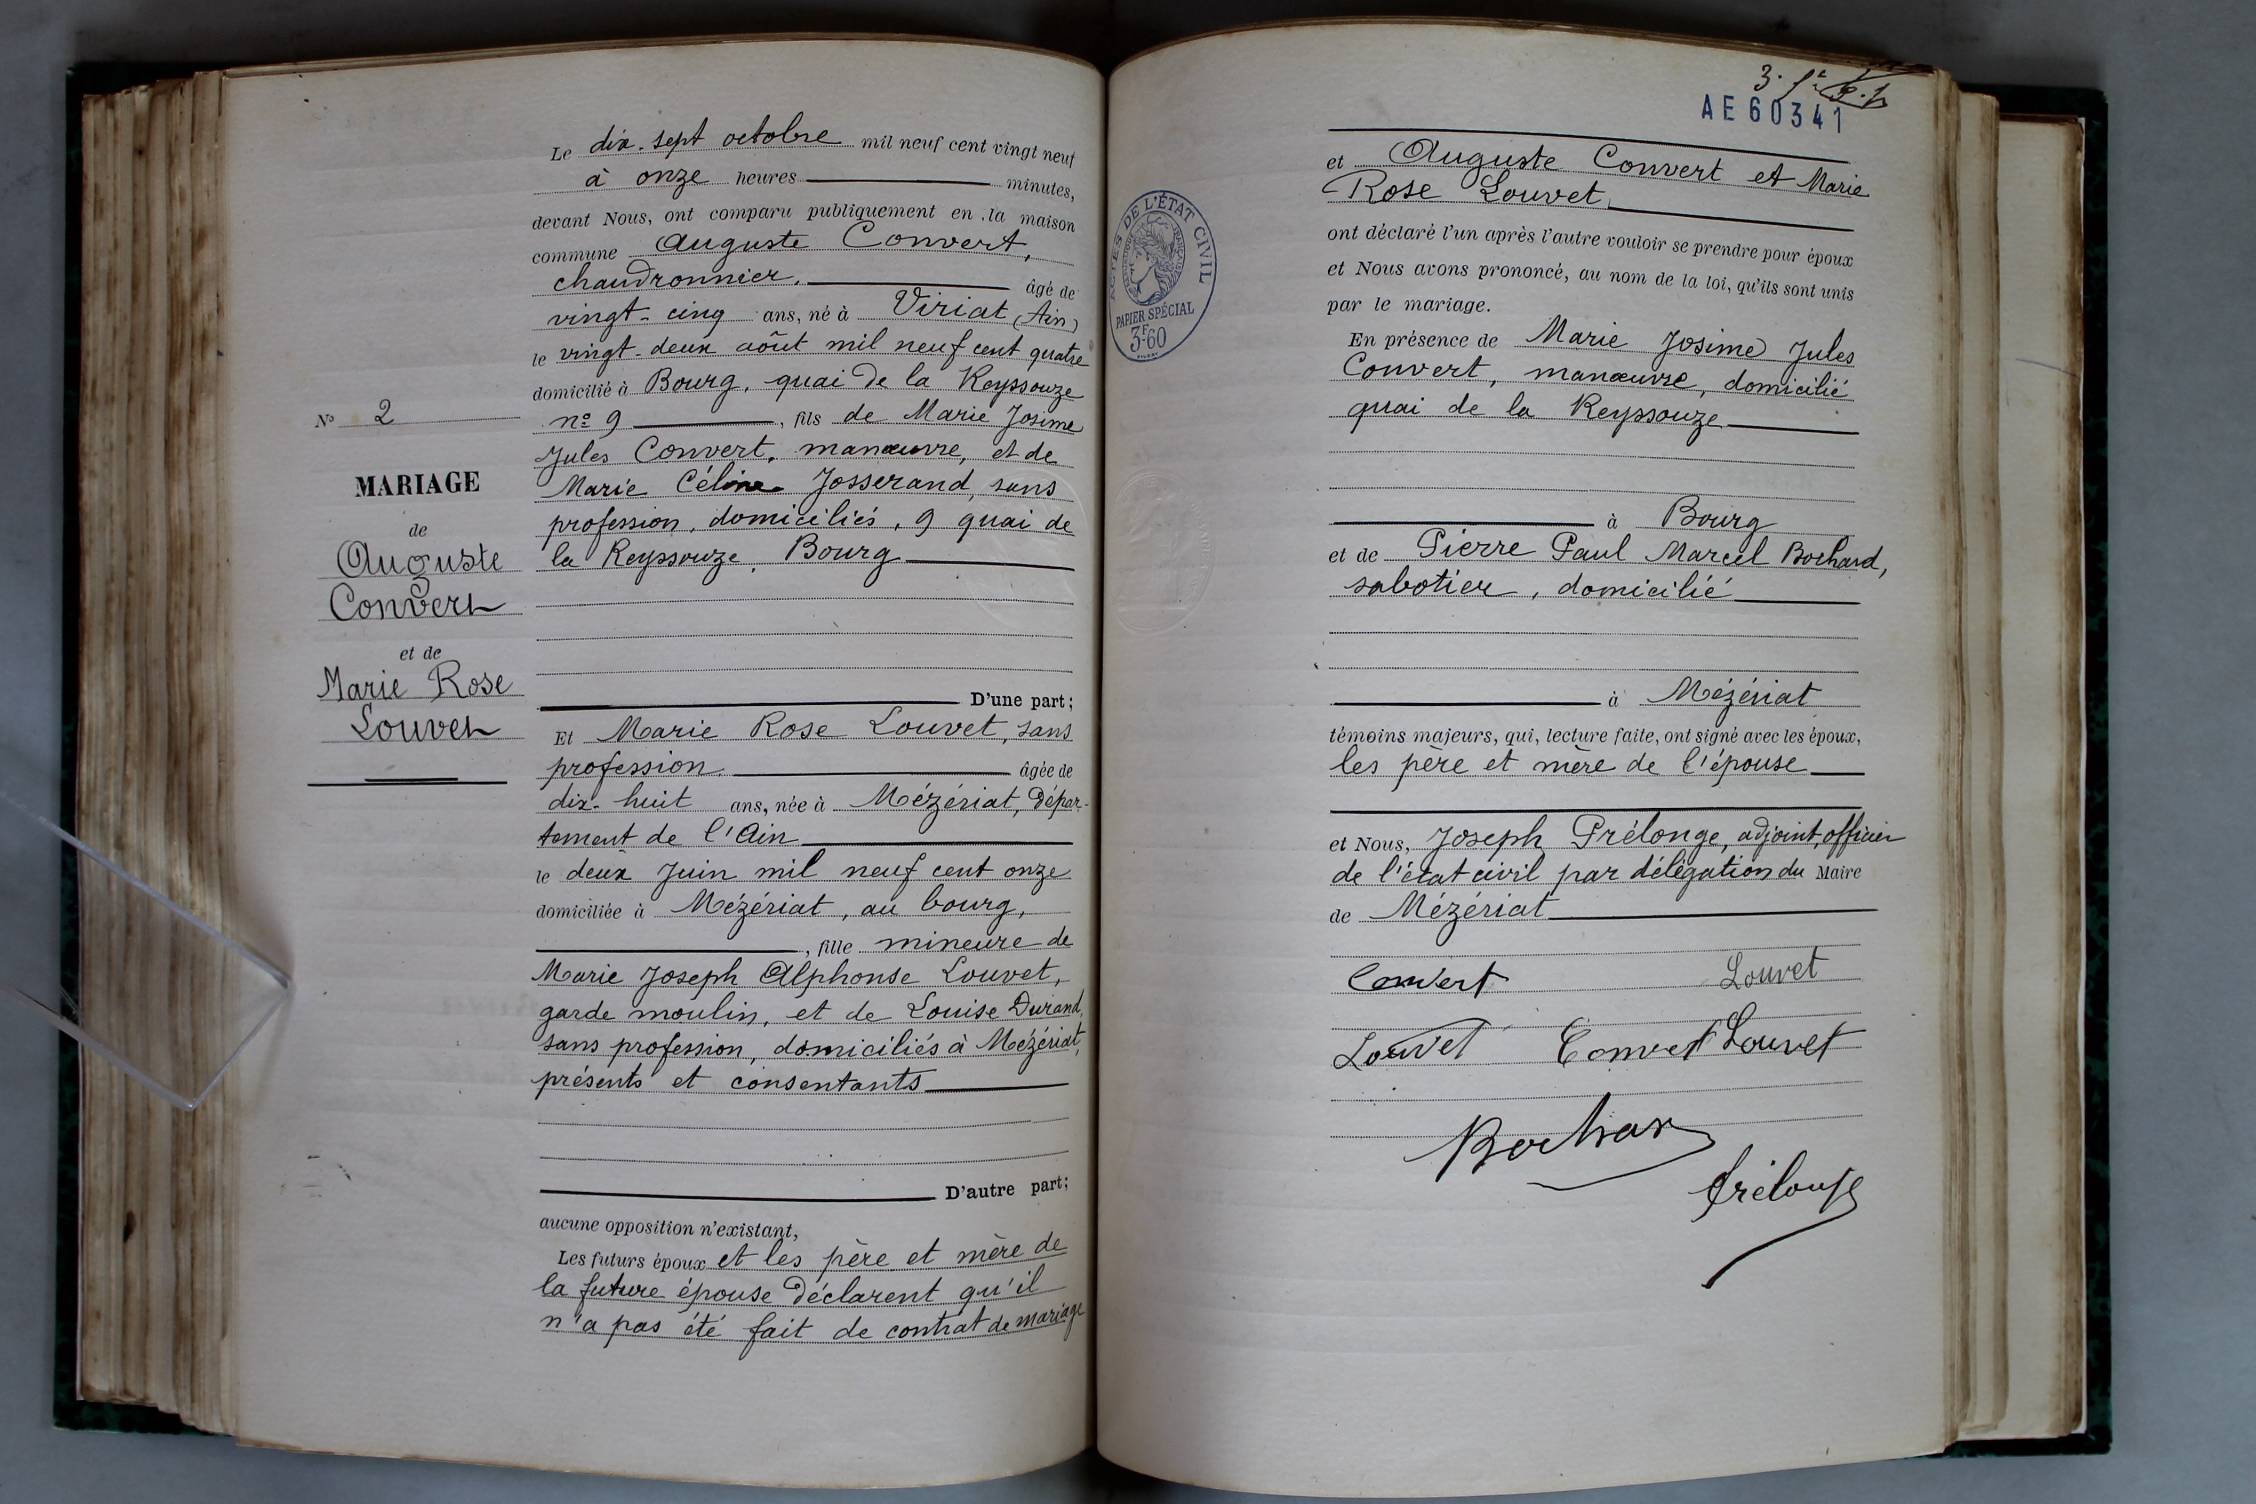 Le dix-sept octobre mil neuf cent vingt neuf
à onze heures minutes,
devant Nous, ont comparu publiquement en la maison
commune Auguste Convert,
chaudronnier, âgé de
vingt-cinq ans, né à Viriat (Ain)
le vingt-deux août mil neuf cent quatre
domicilié à Bourg, quai de la Reyssouze
no 9, fils de Marie Josime
Jules Convert, manœuvre, et de
Marie Céline Josserand, sans
profession, domiciliés, 9 quai de
la Reyssouze, Bourg
D'une part;
No 2
MARIAGE
de
Auguste
Convert
et de
Marie Rose
Louvet
Et Marie Rose Louvet, sans
profession. âgée de
dix-huit ans, née à Mézériat, Dépar-
tement de l'Ain
le deux Juin mil neuf cent onze
domiciliée à Mézériat, au bourg,
, fille mineure de
Marie Joseph Alphonse Louvet,
garde moulin, et de Louise Durand,
sans profession, domiciliés à Mézériat,
présents et consentants
D'autre part;
aucune opposition n'existant,
Les futurs époux et les père et mère de
la future épouse déclarent qu'il
n'a pas été fait de contrat de mariage
AE60341
et Auguste Convert et Marie
Rose Louvet,
ont déclaré l'un après l'autre vouloir se prendre pour époux
et Nous avons prononcé, au nom de la loi, qu'ils sont unis
par le mariage.
En présence de Marie Josime Jules
Convert, manœuvre, domicilié
quai de la Reyssouze
à Bourg
et de Pierre Paul Marcel Bochard,
sabotier, domicilié
à Mézériat
témoins majeurs, qui, lecture faite, ont signé avec les époux,
les père et mère de l'épouse
et Nous, Joseph Prélonge, adjoint, officier
de l'état civil par délégation du Maire
de Mézériat
Convert Louvet
Louvet Convert Louvet
Bochard
Prélonge
ACTES DE L'ÉTAT CIVIL
PAPIER SPÉCIAL
3F60